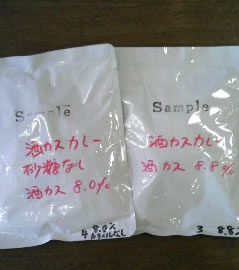 Sample
酒カスカレー
砂糖なし
酒カス 8.0%
4 8.0%
Sample
酒カスカレー
酒カス 8.8%
3 8.8%